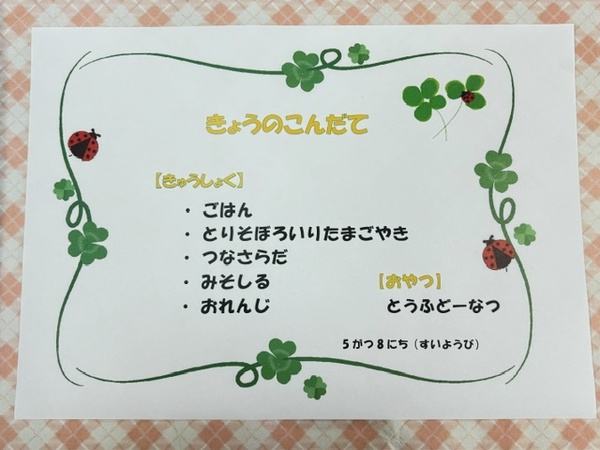 きょうのこんだて
【きゅうしょく】
・ ごはん
・ とりそぼろいりたまごやき
・ つなさらだ
・ みそしる
・ おれんじ
【おやつ】
とうふどーなつ
5がつ8にち（すいようび）